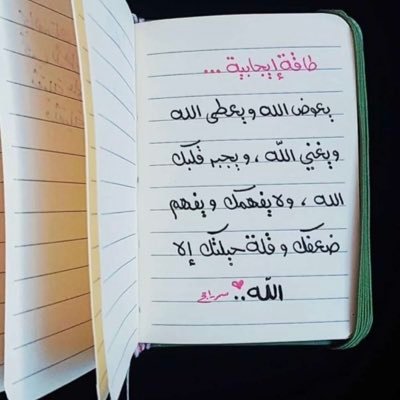 طاقة إيجابية ...
يعوض الله ويعطي الله
ويغني الله ، ويجبر قلبك
الله ، ولا يفهمك ويفهم
ضعفك وقلة حيلتك إلا
الله ..